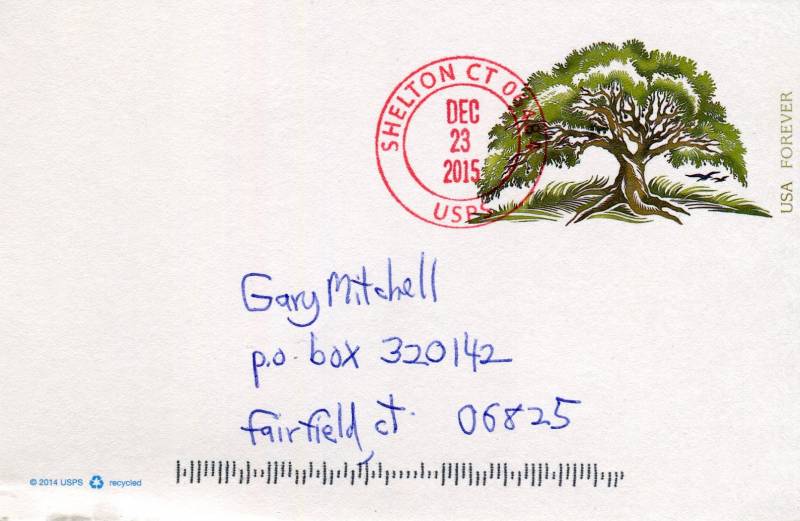 SHELTON CT 06484
DEC
23
2015
USPS
USA FOREVER
Gary Mitchell
p.o. box 320142
fairfield ct. 06825
© 2014 USPS recycled